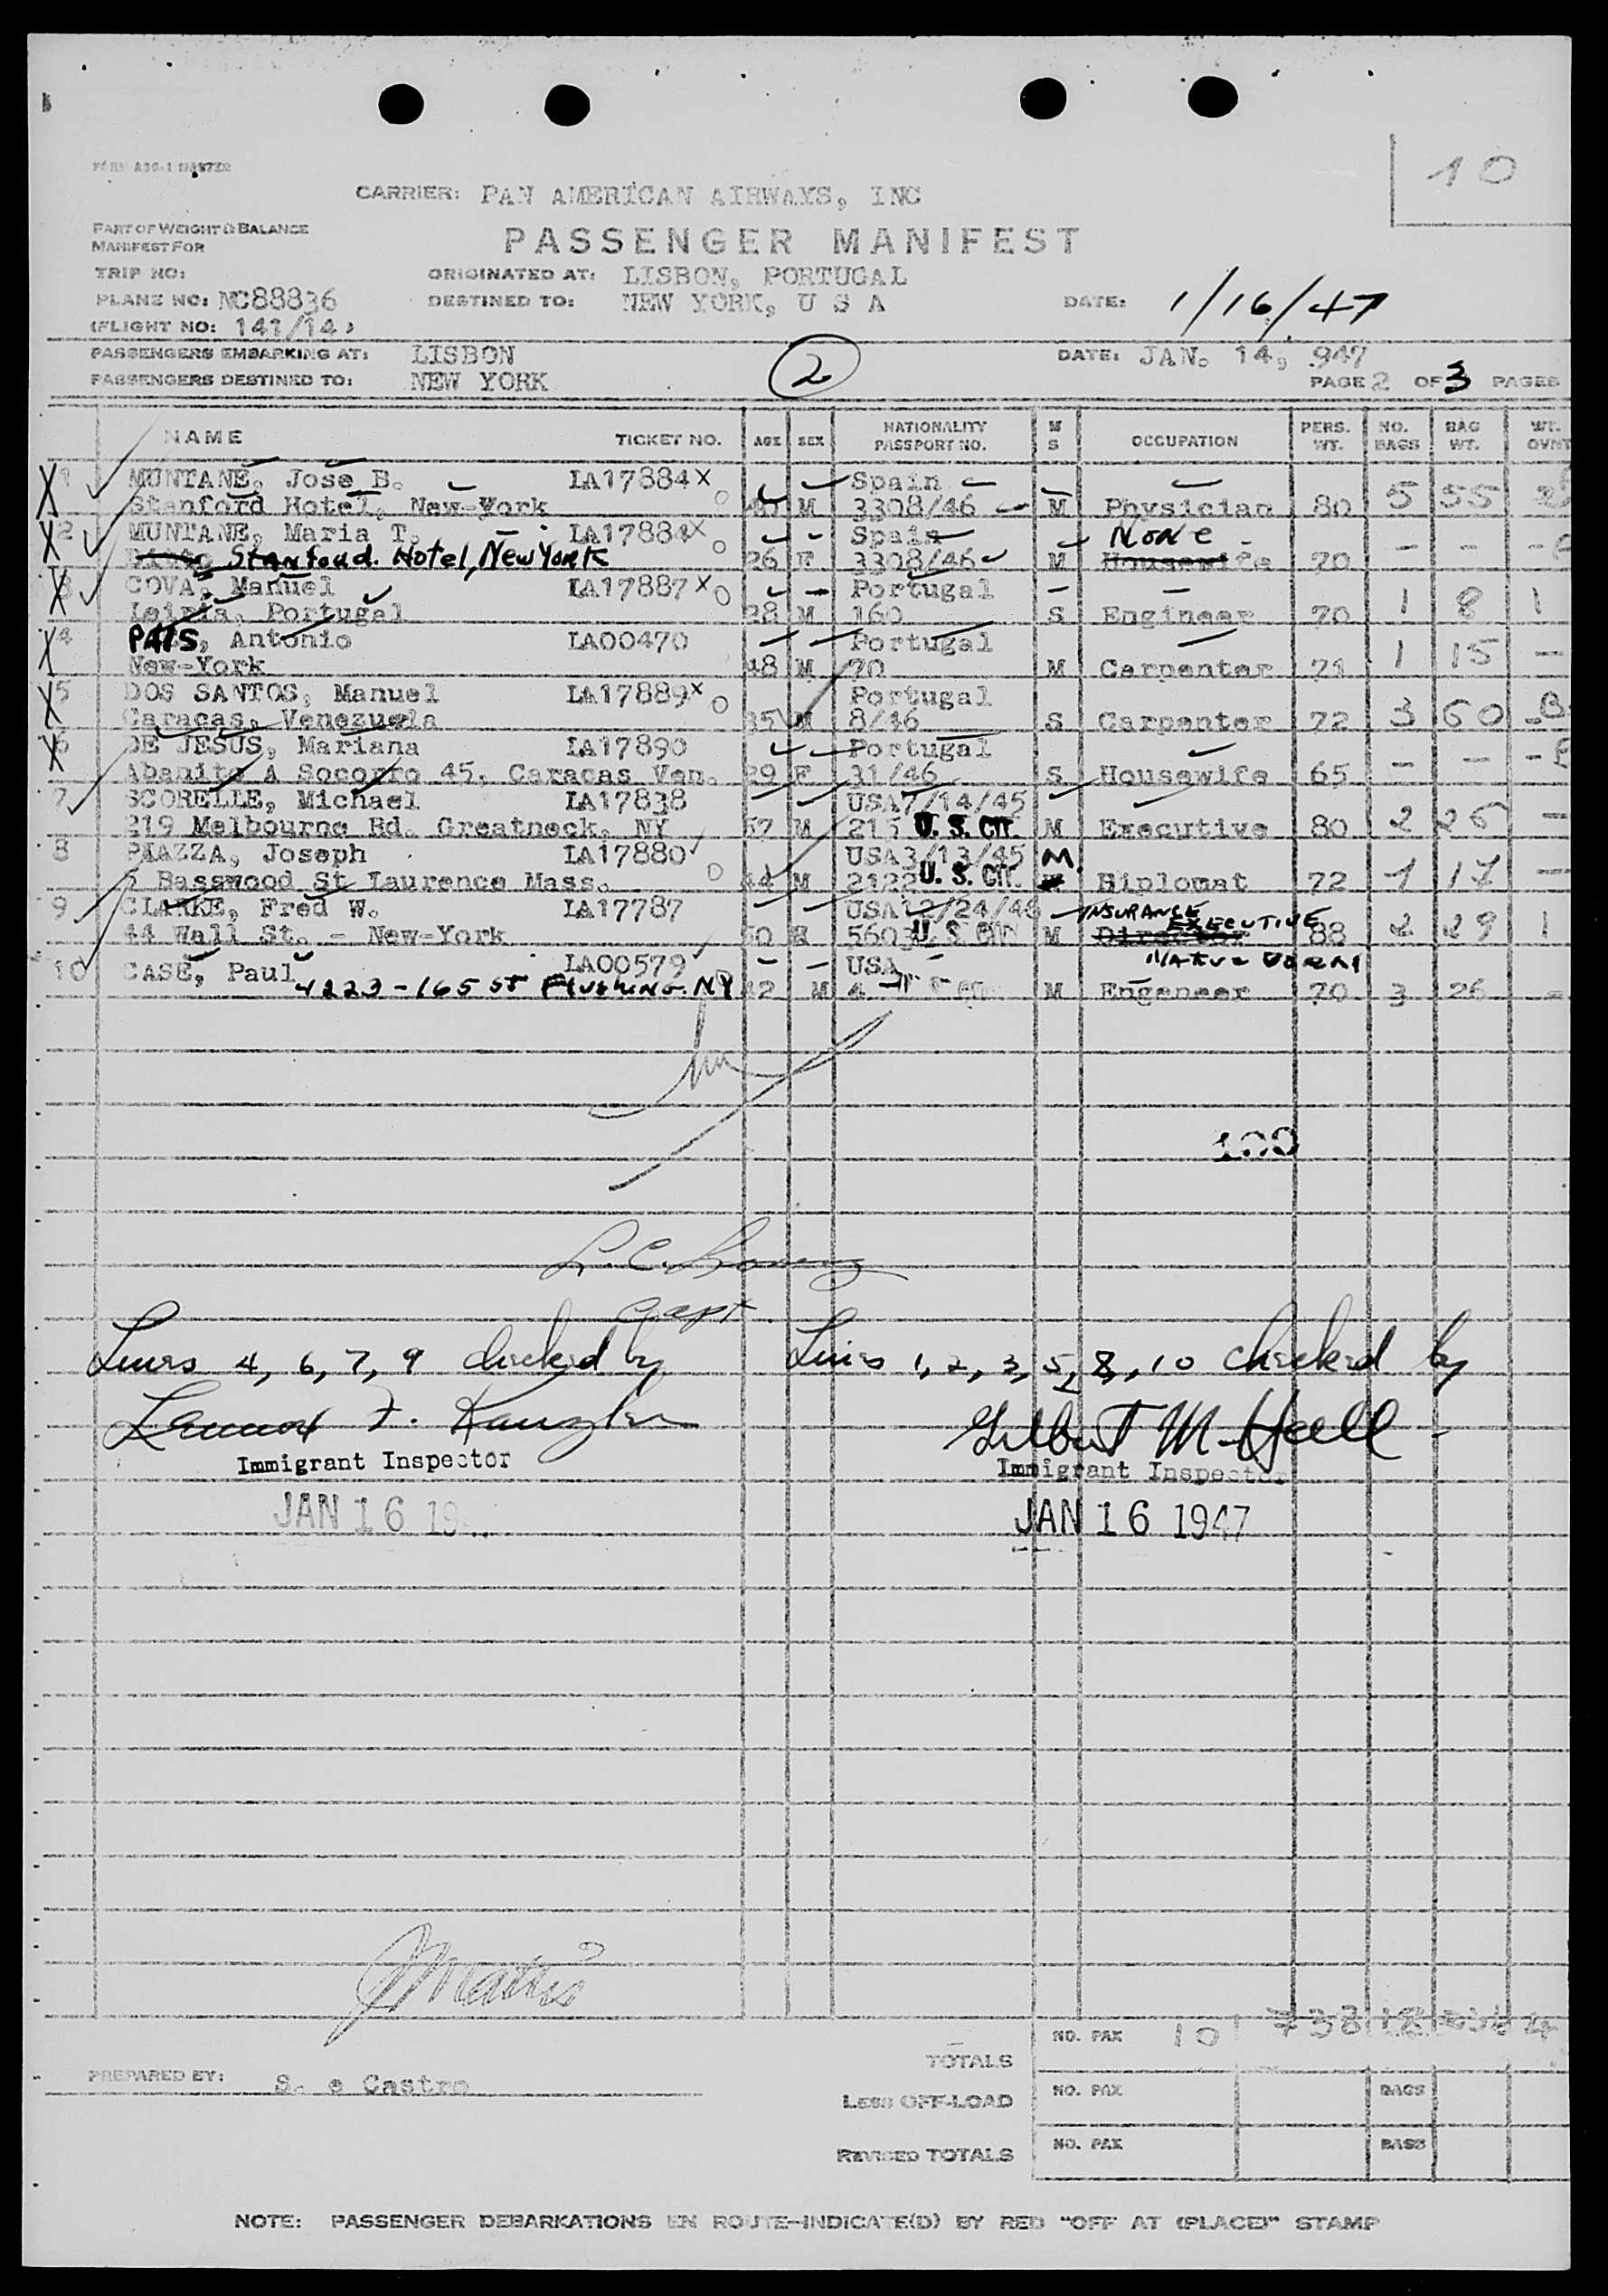 10
CARRIER: PAN AMERICAN AIRWAYS, INC
PART OF WEIGHT & BALANCE
MANIFEST FOR
PASSENGER MANIFEST
TRIP NO:
ORIGINATED AT: LISBON, PORTUGAL
PLANE NO: NC88836
DESTINED TO: NEW YORK, U S A
DATE: 1/16/47
(FLIGHT NO: 141/14)
PASSENGERS EMBARKING AT: LISBON
2
DATE: JAN. 14, 947
PASSENGERS DESTINED TO: NEW YORK
PAGE 2 OF 3 PAGES
NAME TICKET NO. AGE SEX NATIONALITY PASSPORT NO. M S OCCUPATION PERS. WT. NO. BAGS BAG WT. WT. OVNT
1 MUNTANE, Jose B. LA17884 X Spain
Stanford Hotel, New-York M 3308/46 M Physician 80 5 55
2 MUNTANE, Maria T. LA17884 X Spain None
Ditto Stanford Hotel, New York 26 F 3308/46 M Housewife 70 - - -
3 COVA, Manuel LA17887 X Portugal
Leiria, Portugal 28 M 160 S Engineer 70 1 8 1
4 PAIS, Antonio LA00470 Portugal
New-York 48 M 70 M Carpenter 71 1 15 -
5 DOS SANTOS, Manuel LA17889 X Portugal
Caracas, Venezuela 35 M 8/46 S Carpenter 72 3 60
6 DE JESUS, Mariana LA17890 Portugal
Abanito A Socorro 45, Caracas Ven. 29 F 31/46 S Housewife 65 - - -
7 SCORELLE, Michael LA17838 USA 7/14/45
219 Melbourne Rd. Greatneck, NY 57 M 215 U. S. CIT. M Executive 80 2 26 -
8 PIAZZA, Joseph LA17880 USA 3/13/45 M
5 Basswood St Laurence Mass. 44 M 2122 U. S. CIT. Diplomat 72 1 17 -
9 CLARKE, Fred W. LA17787 USA 12/24/46 INSURANCE EXECUTIVE
44 Wall St. - New-York 50 M 5603 U. S. CIT. M Director 88 2 29 1
10 CASE, Paul LA00579 USA NATIVE BORN
4223-165 ST Flushing. NY 42 M 4 M Engeneer 70 3 26 -
100
Capt
Lines 4, 6, 7, 9 checked by
Lines 1, 2, 3, 5, 8, 10 checked by
Gilbert M. Hall
Immigrant Inspector
Immigrant Inspector
JAN 16 19
JAN 16 1947
TOTALS NO. PAX 10 738 18 4
PREPARED BY: S. e Castro
LESS OFF-LOAD NO. PAX BAGS
REVISED TOTALS NO. PAX BAGS
NOTE: PASSENGER DEBARKATIONS EN ROUTE-INDICATE(D) BY RED "OFF AT (PLACE)" STAMP